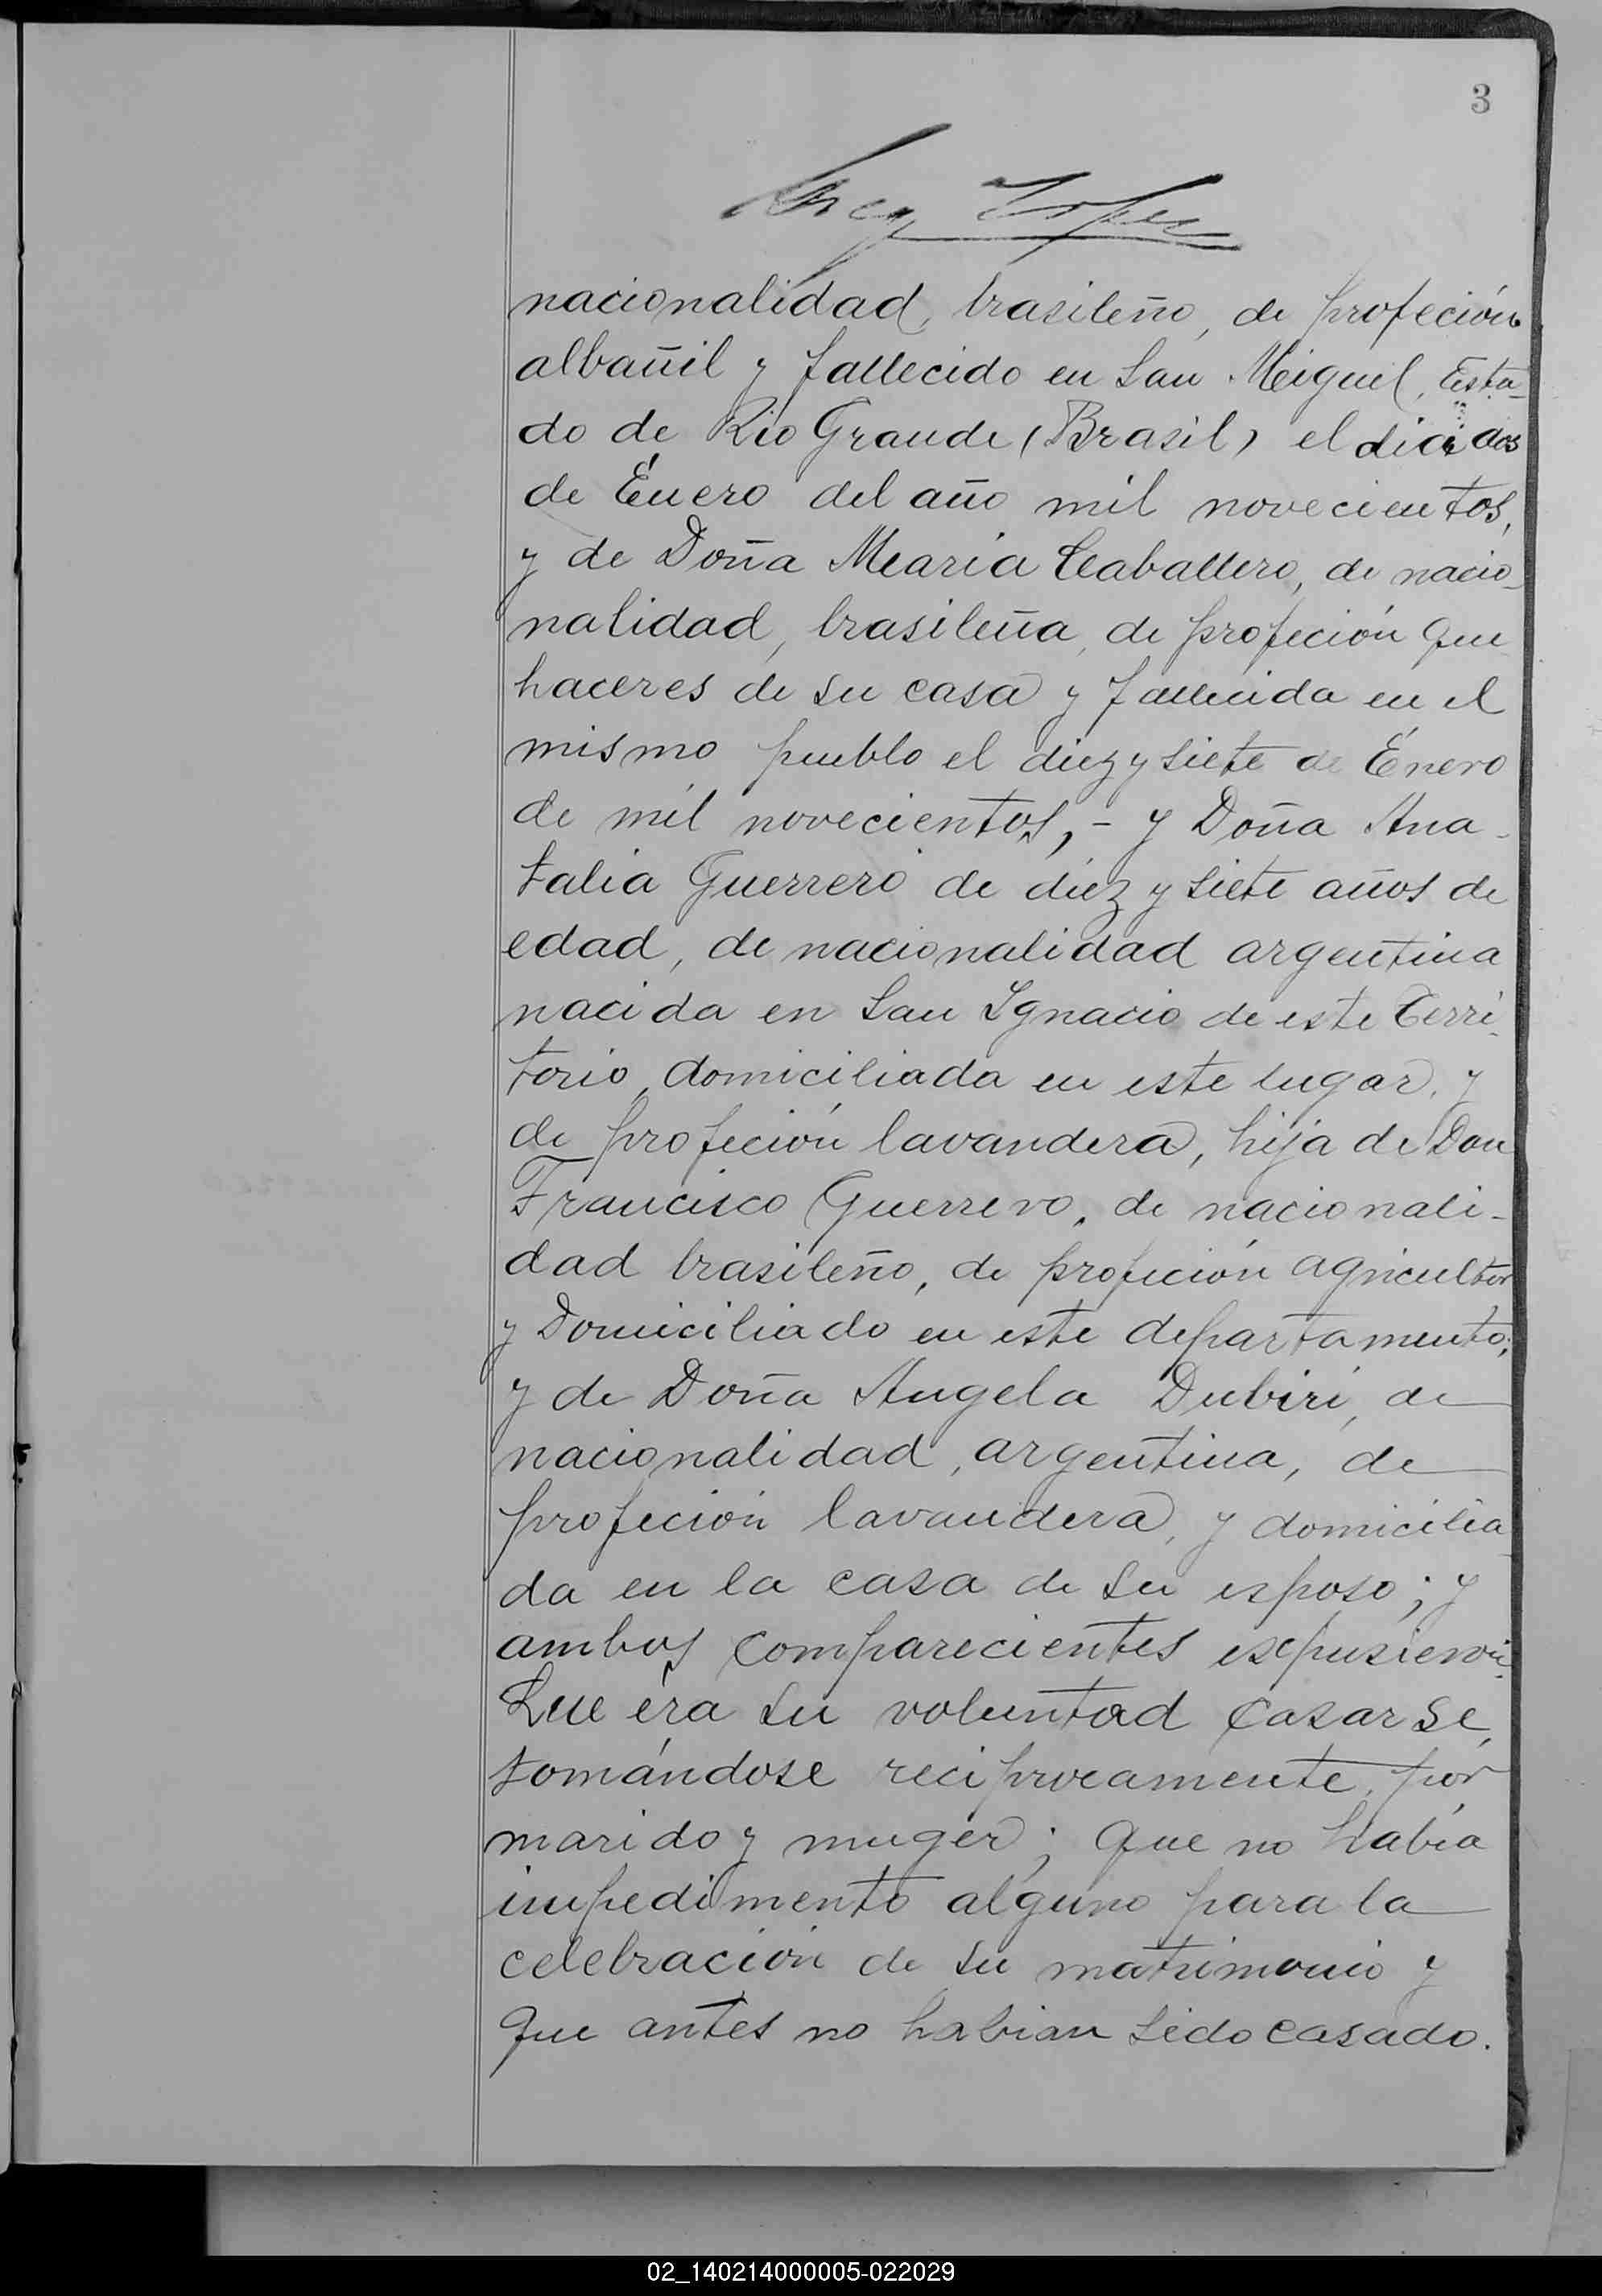 3
nacionalidad, brasileño, de profeción
albañil y fallecido en San Miguel, Esta-
do de Río Grande (Brasil) el dia dos
de Enero del año mil novecientos,
y de Doña Maria Caballero, de nacio-
nalidad, brasileña, de profeción que
haceres de su casa y fallecida en el
mismo pueblo el diez y siete de Enero
de mil novecientos,- y Doña Ana-
talia Guerrero de diez y siete años de
edad, de nacionalidad argentina
nacida en San Ignacio de este Terri-
torio, domiciliada en este lugar, y
de profeción lavandera, hija de Don
Francisco Guerrero, de nacionali-
dad brasileño, de profeción agricultor
y Domiciliado en este departamento;
y de Doña Angela Dubiri, de
nacionalidad, argentina, de
profeción lavandera, y domicilia
da en la casa de su esposo; y
ambos comparecientes espusieron:
Que éra su voluntad casarse,
tomándose reciprocamente, por
marido y muger; que no había
impedimento alguno para la
celebración de su matrimonio y
que antes no habian sido casado.
02_140214000005-022029